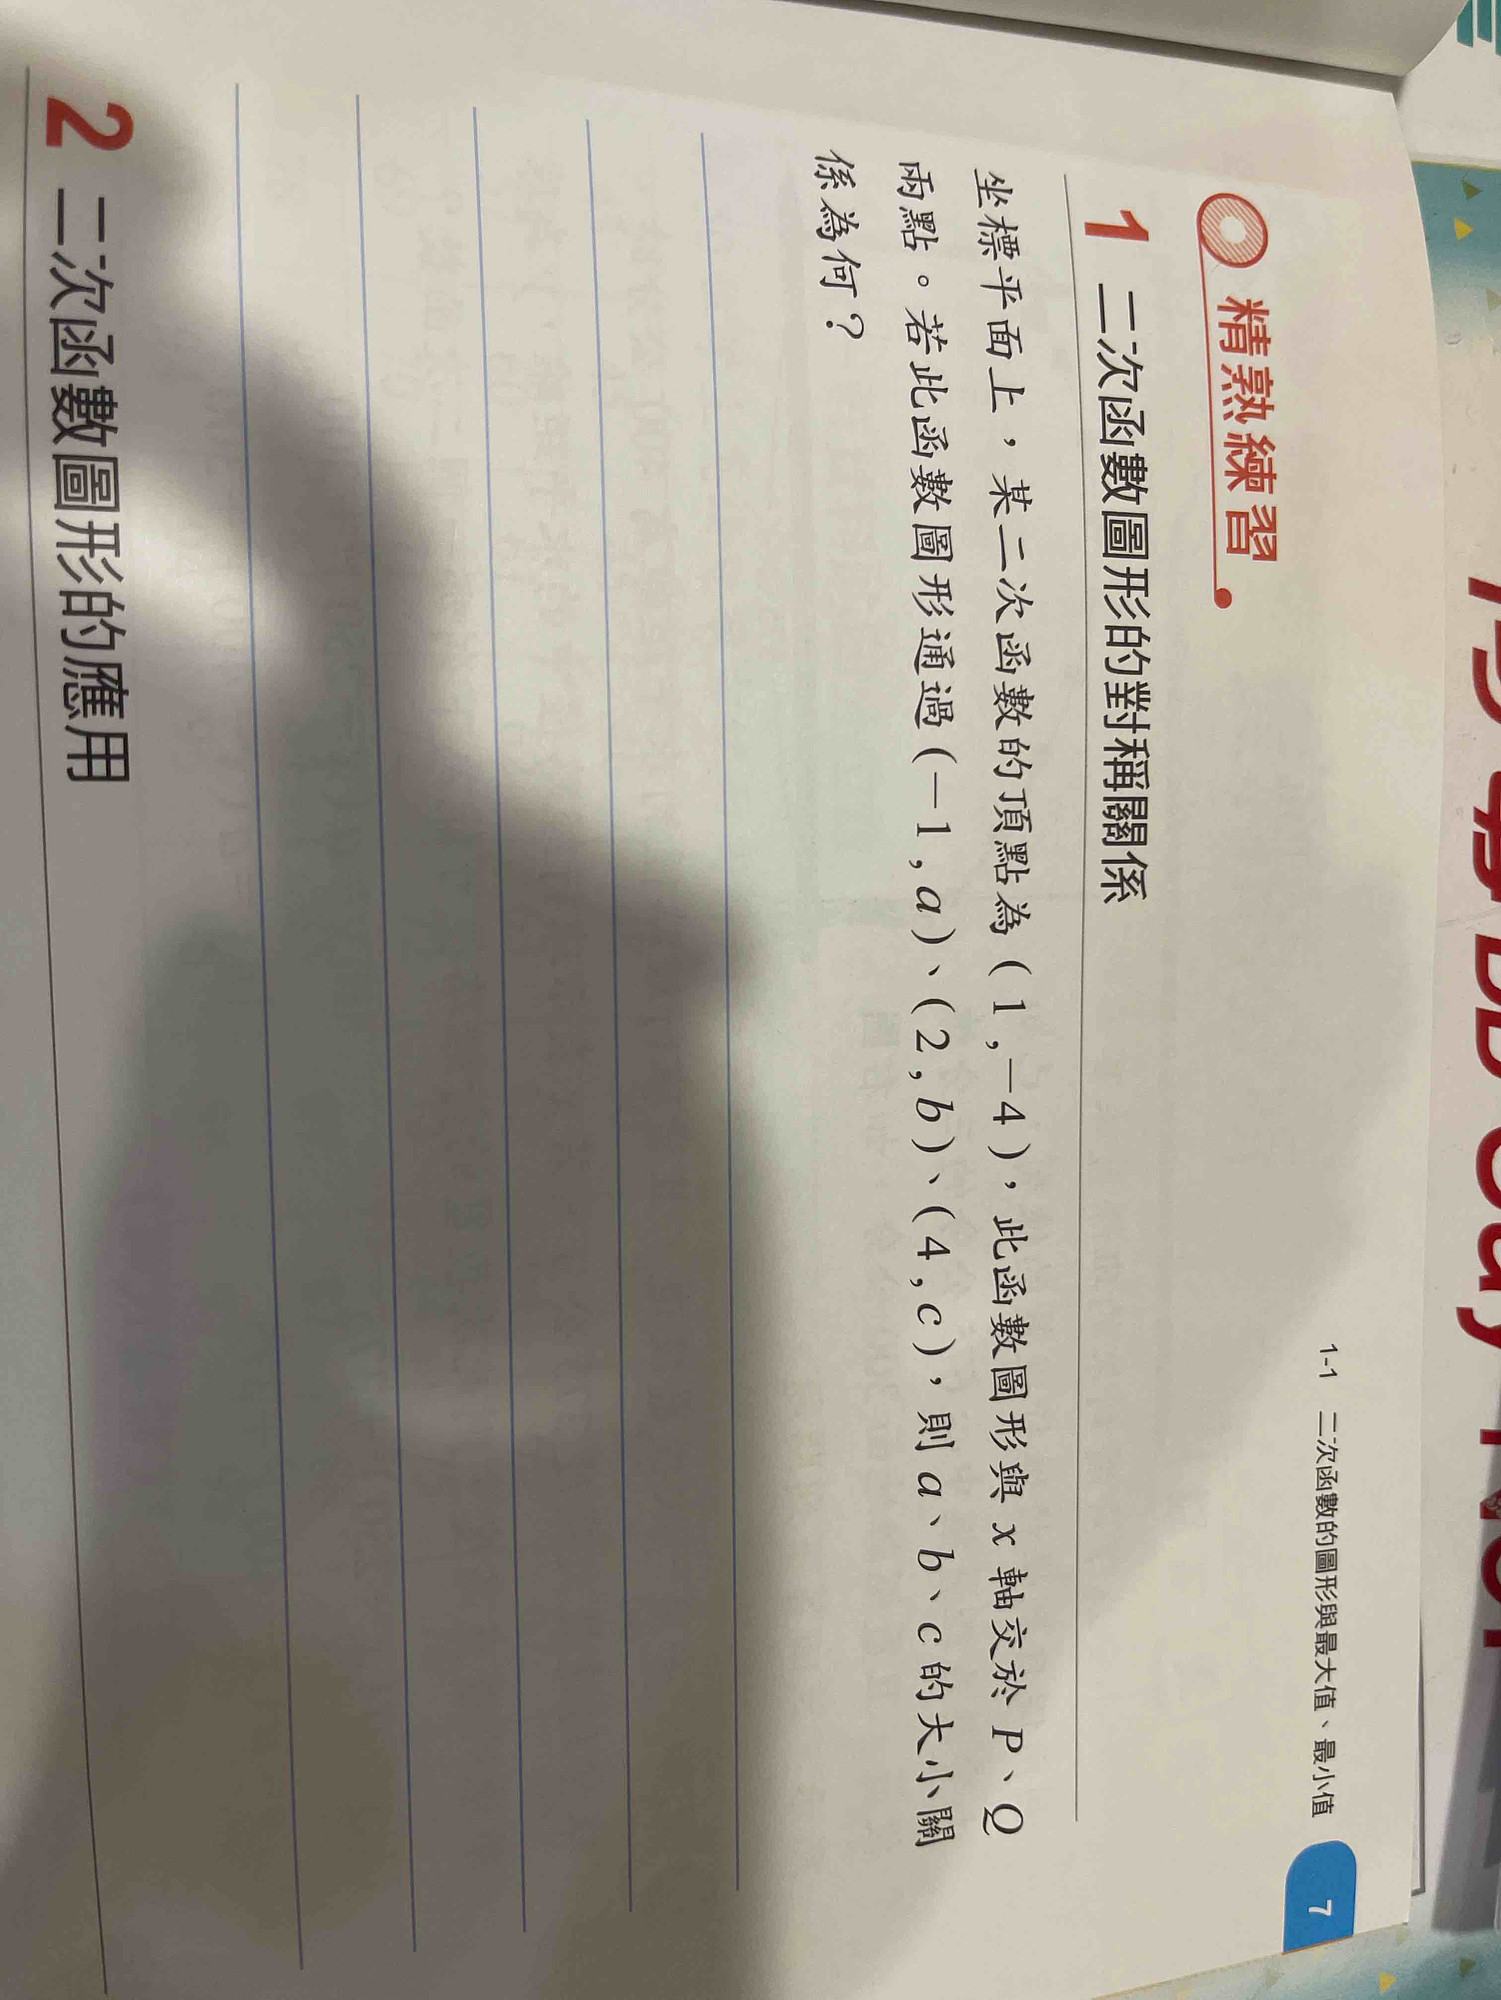 1-1 二次函數的圖形與最大值、最小值 7
精熟練習
1 二次函數圖形的對稱關係
坐標平面上，某二次函數的頂點為(1,-4)，此函數圖形與x軸交於P、Q
兩點。若此函數圖形通過(-1,a)、(2,b)、(4,c)，則a、b、c的大小關
係為何？
2 二次函數圖形的應用